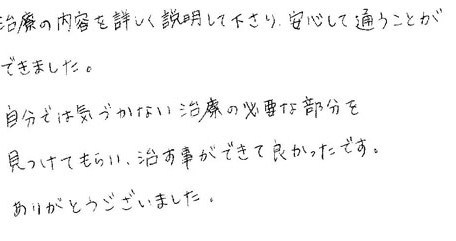 治療の内容を詳しく説明して下さり、安心して通うことが
できました。
自分では気づかない治療の必要な部分を
見つけてもらい、治す事ができて良かったです。
ありがとうございました。